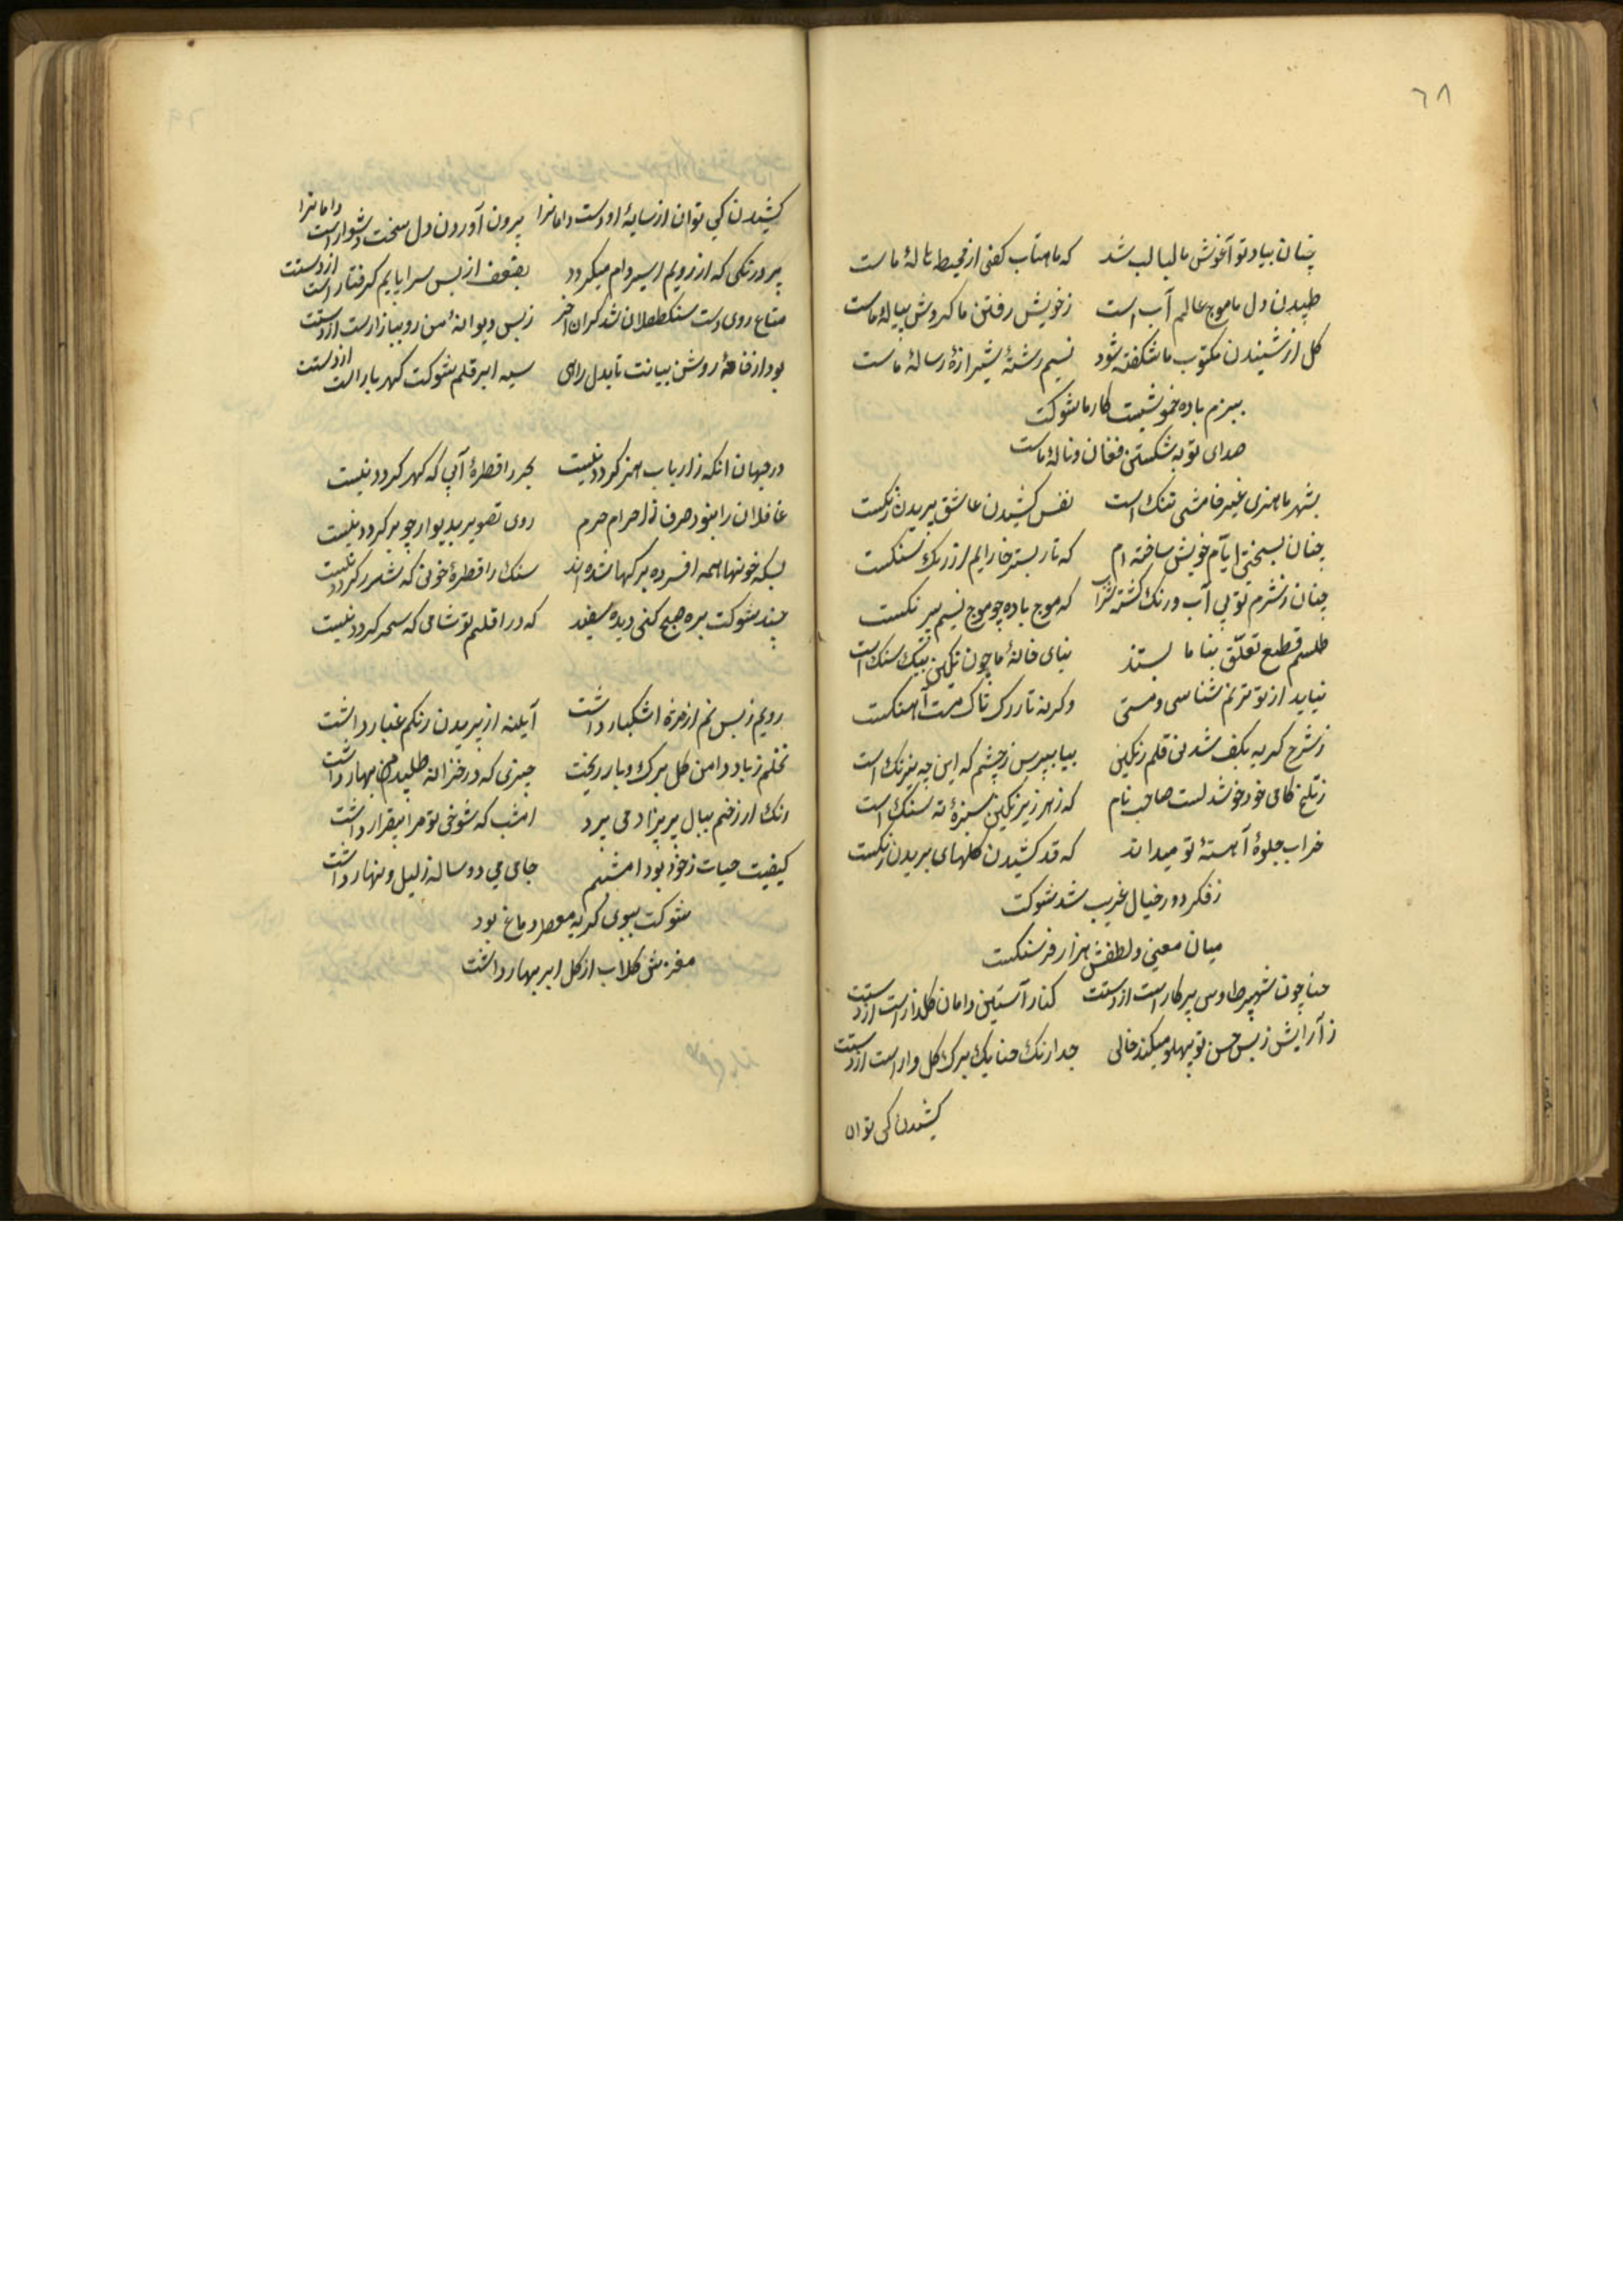 ٦٨
چنان بیاد تو آغوش ما لبالب شد که ماهتاب کفی از محیط هالهٔ ماست
طپیدن دل ما موج عالم آب است زخویش رفتن ما کردش پیالهٔ ماست
کل از شنیدن مکتوب ما شکفته شود نسیم رشتهٔ شیرازهٔ رسالهٔ ماست
ببزم باده خموشیست کار ما شوکت
صدای توبه شکستن فغان و نالهٔ ماست
بشهر ما هنری غیر خامشی ننک است نفس کشیدن عاشق پریدن رنکست
چنان بسختی ایام خویش ساخته ام که تار بستر خارایم از رک سنکست
چنان زشرم تو بی آب ورنک کشته شراب که موج باده چو موج نسیم بیرنکست
طلسم قطع تعلّق بنا ما بستند بنای خانهٔ ما چون نکین بیک سنک است
نیاید از تو ترنم شناسی ومستی وکرنه تار رک تاک مست آهنکست
زشرح کریه بکف شد نی قلم رنکین بیا بپرس زچشم که این چه نیرنک است
زتلخ کامی خود خوشدلست صاحب نام که زهر زیر نکین سبزهٔ ته سنک است
خراب جلوهٔ آهستهٔ تو میداند که قد کشیدن کلهای پریدن رنکست
زفکر دور خیال غریب شد شوکت
میان معنی ولفظش هزار فرسنکست
حنا چون شهپر طاوس پرکار است از دستت کنار آستین دامان کلزار است از دستت
ز آرایش زبس حسن تو پهلو میکند خالی جدا رنک حنا یک برک کل وار است از دستت
کشیدن کی توان
کشیدن کی توان از سایهٔ او دست دامانرا برون آوردن دل سخت دشوار است از دستت
پرد رنکی که از رویم اسیر دام میکردد بضعف از بس سراپایم کرفتار است از دستت
متاع روی دست سنک طفلان شد کران آخر زبس دیوانهٔ من رو ببازار است از دستت
بود از خامهٔ روشن بیانت تا بدل راهی سیه ابر قلم شوکت کهربار است از دستت
در جهان انکه ز ارباب هنر کردد نیست بحر را قطرهٔ آبی که کهر کردد نیست
غافلان را نبود حرف ز احرام حرم روی تصویر بدیوار چو برکردد نیست
بسکه خونها همه افسرده برکها شده اند سنک را قطرهٔ خونی که شرر کردد نیست
چند شوکت بره صبح کنی دیده سفید که در اقلیم تو شامی که سحر کردد نیست
رویم زبس نم از مژهٔ اشکبار داشت آیینه از پریدن رنکم غبار داشت
نخلم زباد دامن کل برک وبار ریخت چیزی که در خزانه طلبیدم بهار داشت
رنک از رخم ببال پریزاد می پرد امشب که شوخی تو مرا بیقرار داشت
کیفیت حیات زخود بود امشبم جامی می دوساله زلیل ونهار داشت
شوکت ببوی کریه معطر دماغ بود
مغزش کلاب از کل ابر بهار داشت